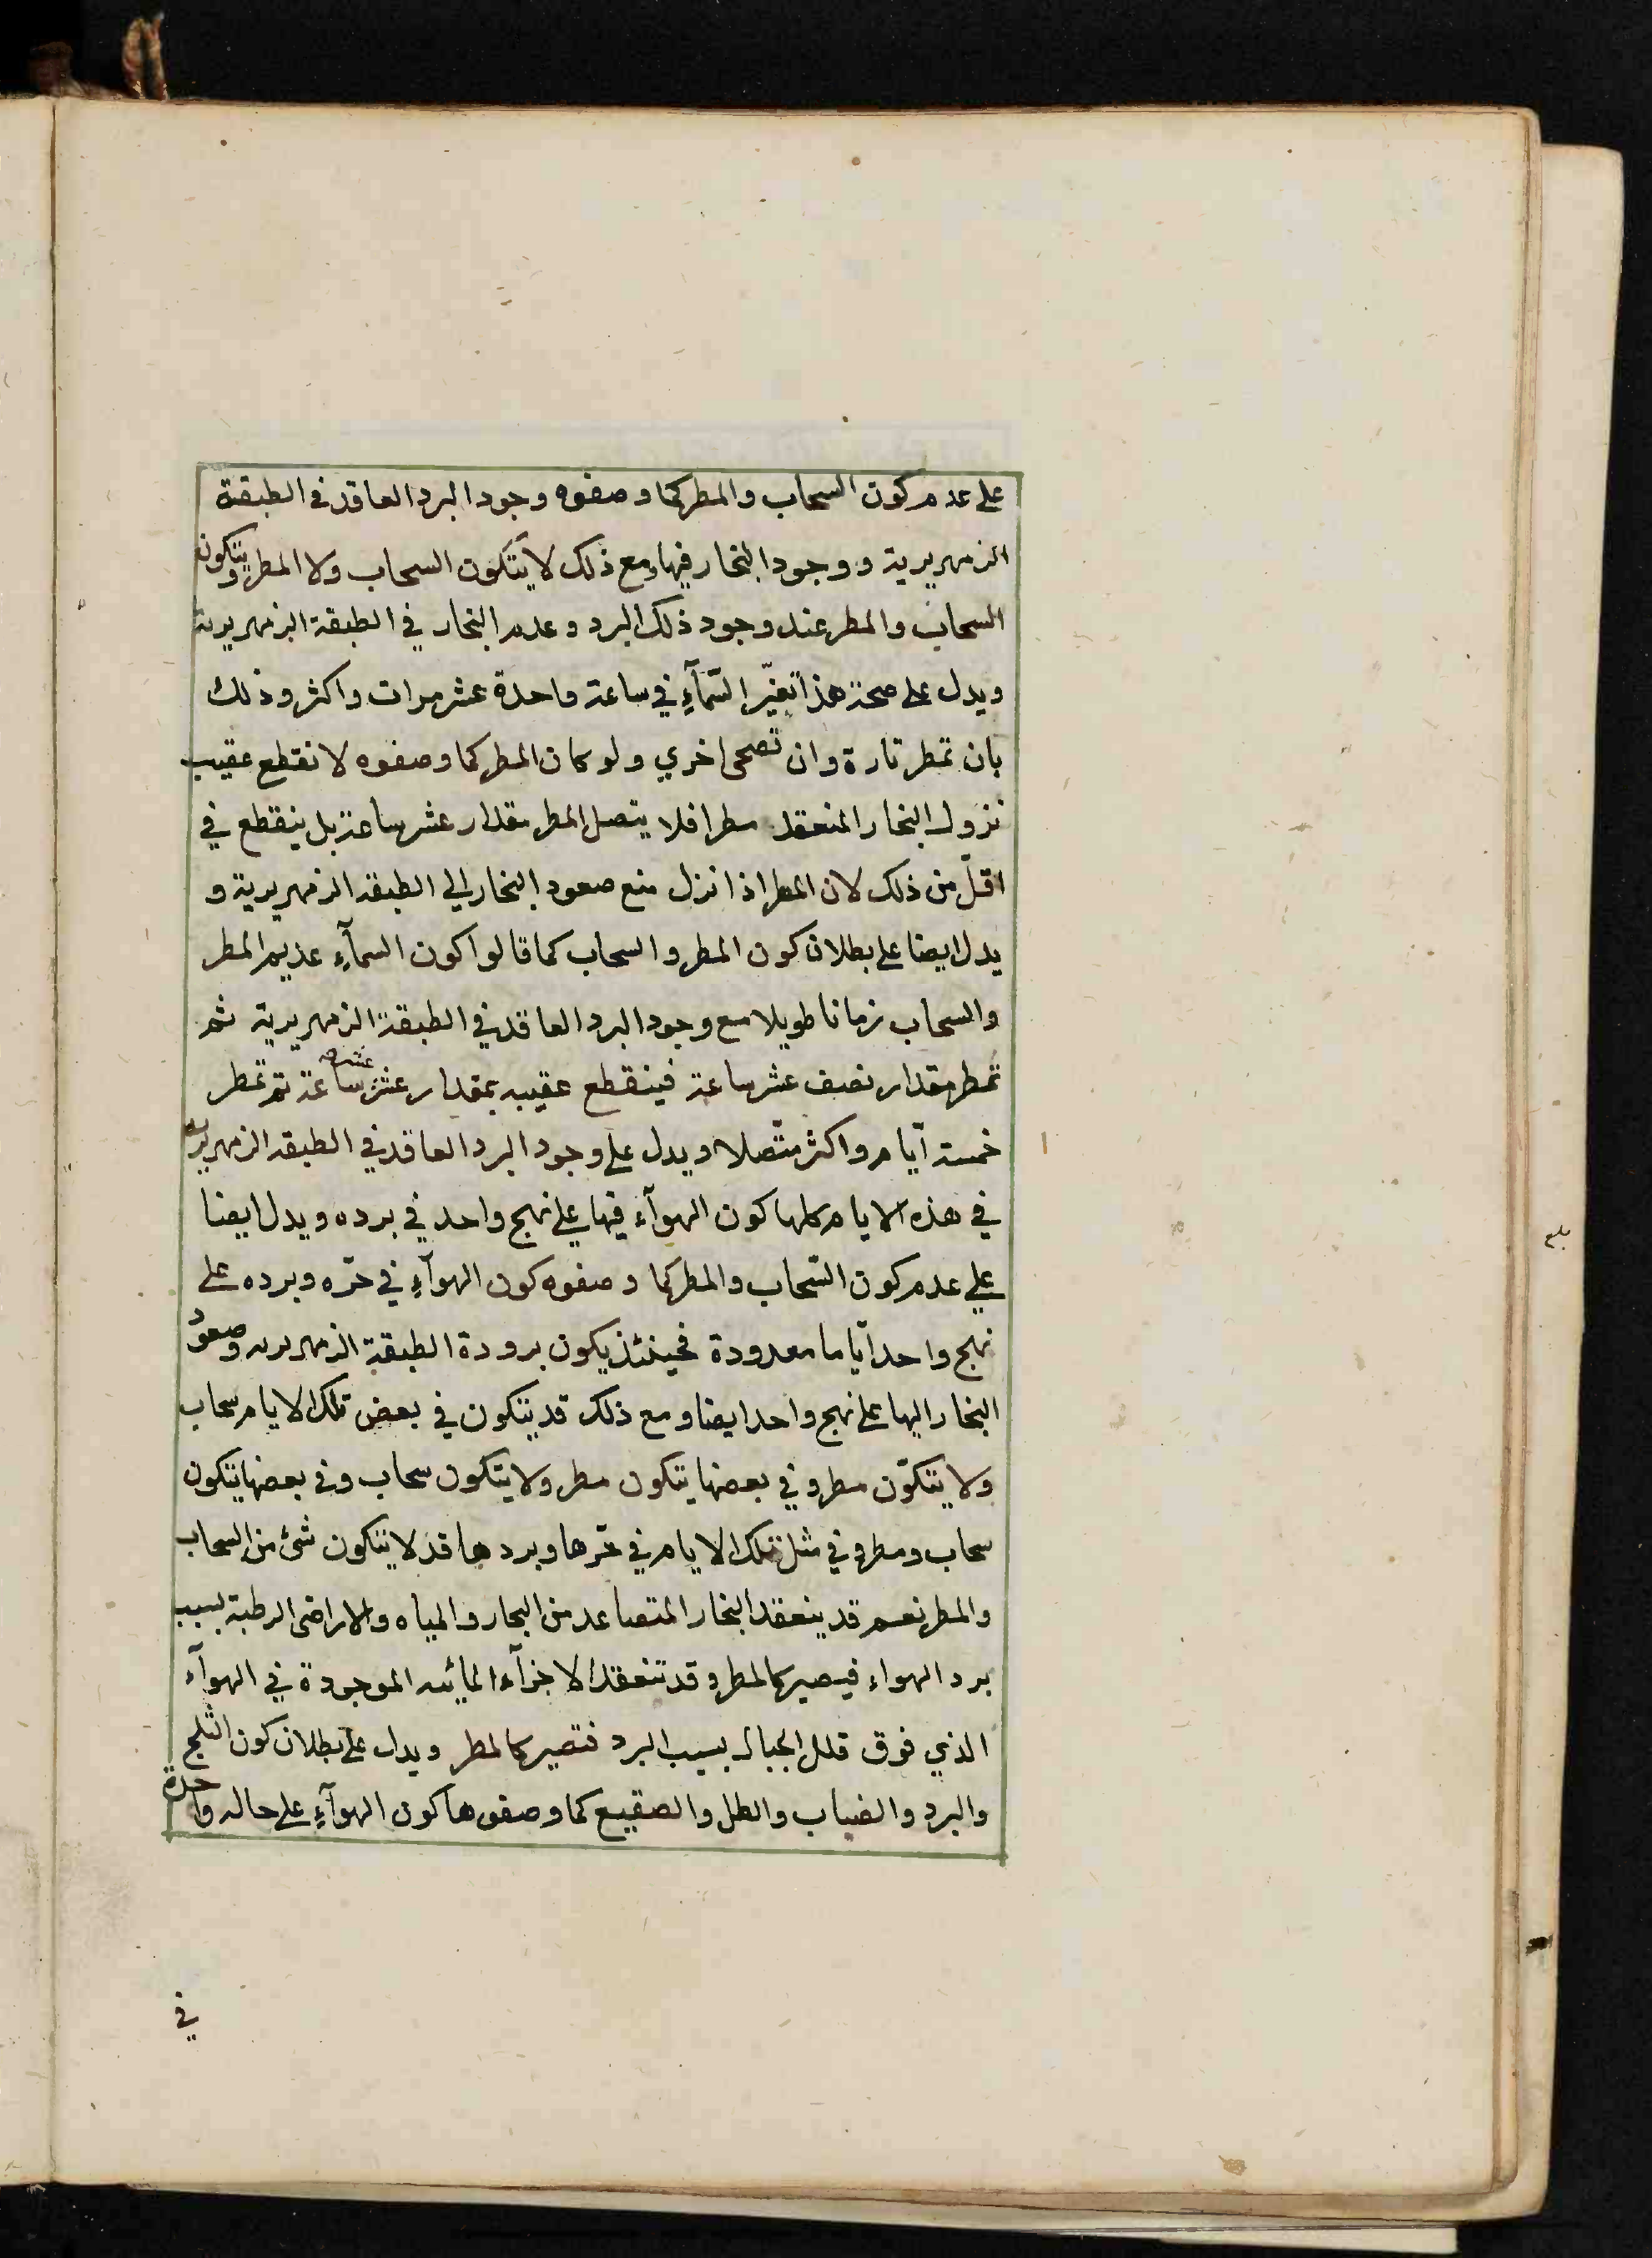 على عدم كون السحاب والمطر كما وصفوه وجود البرد العاقد فى الطبقة
الزمهريرية ووجود البخار فيها ومع ذلك لا يتكون السحاب ولا المطر ويتكون
السحاب والمطر عند وجود ذلك البرد وعدم البخار في الطبقة الزمهريرية
ويدل على صحة هذا تغيّر السّمآءِ في ساعة واحدة عشر مرات واكثر وذلك
بان تمطر تارة وان تصحى اخري ولو كان المطر كما وصفوه لا نقطع عقيب
نزول البخار المنعقد مطرا فلا يتصل المطر مقدار عشر ساعة بل ينقطع في
اقلّ من ذلك لان المطر اذا نزل منع صعود البخار الي الطبقه الزمهريرية و
يدل ايضا على بطلان كون المطر والسحاب كما قالوا كون السمآءِ عديم المطر
والسحاب زمانا طويلا مع وجود البرد العاقد في الطبقة الزمهريرية ثم
تمطر مقدار نصف عشر ساعة فينقطع عقيبه بمقدار عشر عشر ساعة ثم تمطر
خمسة ايّام واكثر متّصلا ويدل على وجود البرد العاقد في الطبقه الزمهريريه
في هذه الايام كلها كون الهوآء فيها على نهج واحد في برده ويدل ايضا
علي عدم كون السّحاب والمطر كما وصفوه كون الهوآءِ في حرّه وبرده على
نهج واحد ايّاما معدودة فحينئذ يكون برودة الطبقة الزمهريريه وصعود
البخار اليها على نهج واحد ايضا ومع ذلك قد يتكون في بعض تلك الايام سحاب
ولا يتكوّن مطر وفي بعضها يتكون مطر ولا يتكون سحاب وفى بعضها يتكون
سحاب ومطر وفي مثل تلك الايام في حرّها وبردها قد لا يتكون شئ من السحاب
والمطر نعم قد ينعقد البخار المتصاعد من البحار والمياه والاراضى الرطبة بسبب
برد الهواء فيصير كالمطر وقد تنعقد الاجزآء المائيه الموجودة في الهوآء
الذي فوق قلل الجبال بسبب البرد فتصير كالمطر ويدل على بطلان كون الثلج
والبرد والضباب والطل والصقيع كما وصفوها كون الهوآءِ على حاله واحدة
في